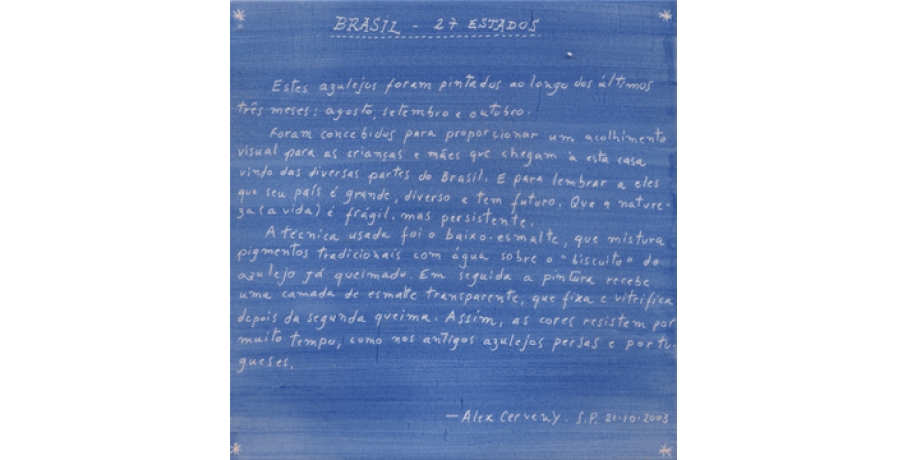 BRASIL - 27 ESTADOS
Estes azulejos foram pintados ao longo dos últimos
três meses: agosto, setembro e outubro.
Foram concebidos para proporcionar um acolhimento
visual para as crianças e mães que chegam à esta casa
vindo das diversas partes do Brasil. E para lembrar a eles
que seu país é grande, diverso e tem futuro. Que a nature-
za (a vida) é frágil, mas persistente.
A técnica usada foi o baixo-esmalte, que mistura
pigmentos tradicionais com água sobre o "biscuito" do
azulejo já queimado. Em seguida a pintura recebe
uma camada de esmalte transparente, que fixa e vitrifica
depois da segunda queima. Assim, as cores resistem por
muito tempo, como nos antigos azulejos persas e portu-
gueses.
— Alex Cerveny. S.P. 21·10·2003